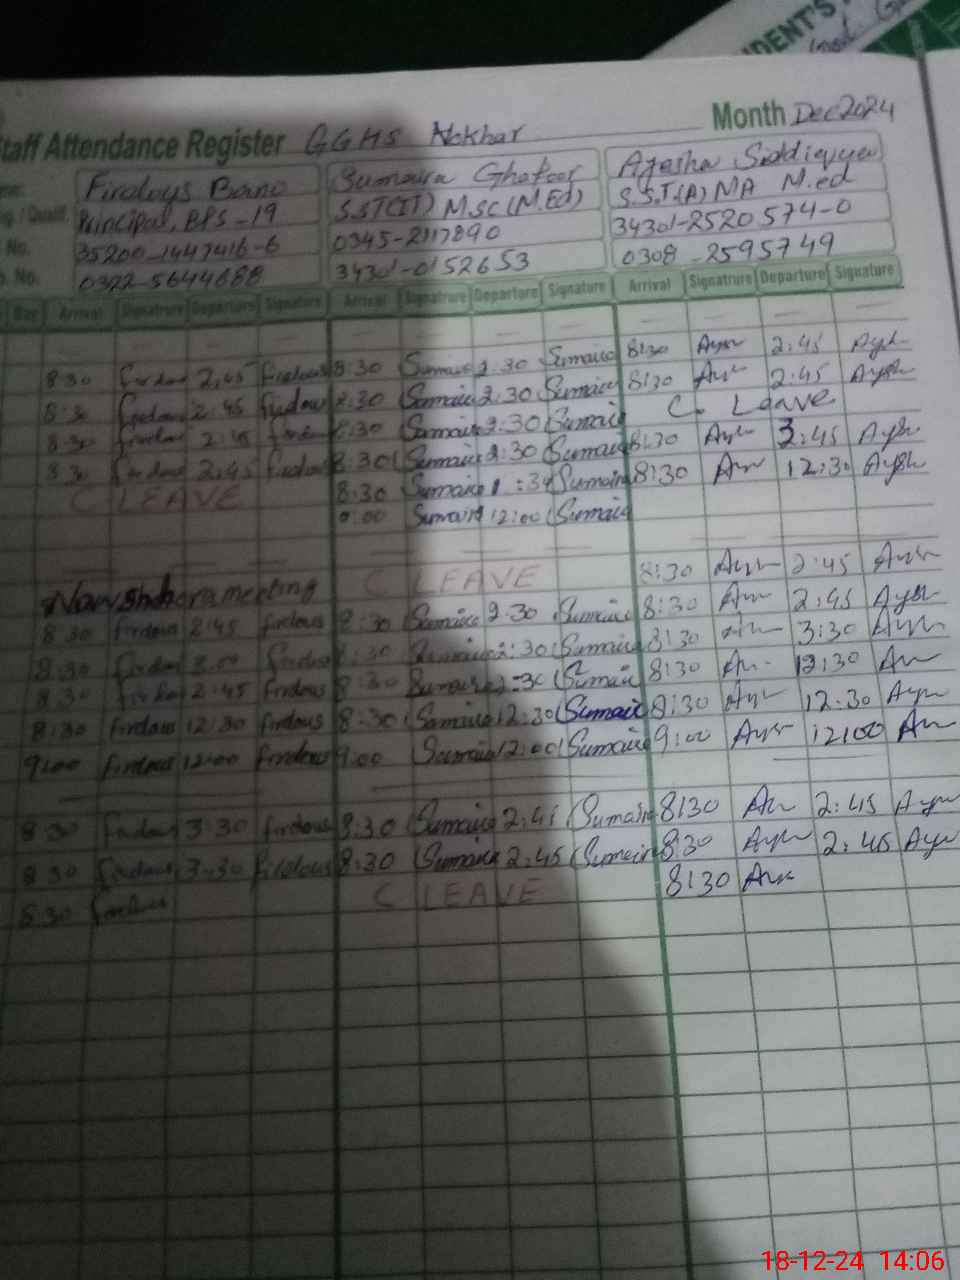 DENT'S
Staff Attendance Register GGHS Nokhar Month Dec 2024
Firdoys Bano Sumaira Ghafoor Ayesha Siddiqua
g / Qualif. Principal, BPS-19 S.ST(IT) M.SC(M.Ed) S.S.T.(A) MA M.ed
No. 35200-1447416-6 0345-2117890 34301-2520574-0
No. 0322-5644688 34301-0152653 0308-2595749
Day Arrival Signatrure Departure Signature Arrival Signatrure Departure Signature Arrival Signatrure Departure Signature
8:30 firdous 2:45 firdous 8:30 Sumaira 2:30 Sumaira 8:30 Aysh 2:45 Aysh
8:30 firdous 2:45 firdous 8:30 Sumaira 2:30 Sumaira 8:30 Aysh 2:45 Aysh
8:30 firdous 2:45 firdous 8:30 Sumaira 2:30 Sumaira C. Leave
8:30 firdous 2:45 firdous 8:30 Sumaira 2:30 Sumaira 8:30 Aysh 3:45 Aysh
C LEAVE 8:30 Sumaira Sumaira 8:30 Aysh 12:30 Aysh
9:00 Sumaira 12:00 Sumaira
meeting C LEAVE 8:30 Aysh 2:45 Aysh
8:30 firdous 2:45 firdous 8:30 Sumaira 2:30 Sumaira 8:30 Aysh 2:45 Aysh
8:30 firdous 3:00 firdous 8:30 Sumaira 2:30 Sumaira 8:30 Aysh 3:30 Aysh
8:30 firdous 2:45 firdous 8:30 Sumaira Sumaira 8:30 Aysh 12:30 Aysh
8:30 firdous 12:30 firdous 8:30 Sumaira 12:30 Sumaira 8:30 Aysh 12:30 Aysh
9:00 firdous 12:00 firdous 9:00 Sumaira 12:00 Sumaira 9:00 Aysh 12:00 Aysh
8:30 firdous 3:30 firdous 8:30 Sumaira 2:45 Sumaira 8:30 Aysh 2:45 Aysh
8:30 firdous 3:30 firdous 8:30 Sumaira 2:45 Sumaira 8:30 Aysh 2:45 Aysh
8:30 firdous C LEAVE 8:30 Aysh
18-12-24 14:06